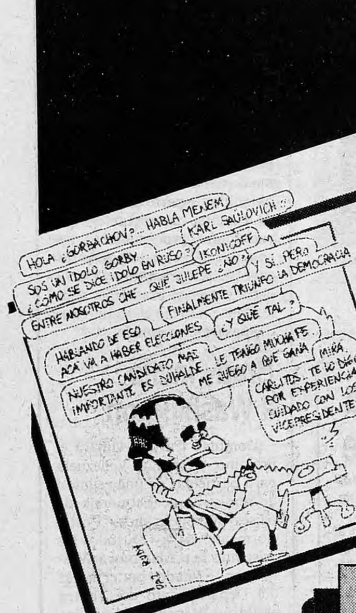 HOLA ¿GORBACHOV?.. HABLA MENEM
KARL SAULOVICH!!
SOS UN IDOLO GORBY
¿CÓMO SE DICE IDOLO EN RUSO?
IKONICOFF
ENTRE NOSOTROS CHE.. QUE JULEPE ¿NO?
Y SÍ. PERO
FINALMENTE TRIUNFO LA DEMOCRACIA
HABLANDO DE ESO
ACÁ VA A HABER ELECCIONES
¿Y QUÉ TAL?
NUESTRO CANDIDATO MAS
IMPORTANTE ES DUHALDE.
LE TENGO MUCHA FE
ME JUEGO A QUE GANA
MIRA,
CARLITOS.. TE LO DIGO
POR EXPERIENCIA
CUIDADO CON LOS
VICEPRESIDENTE